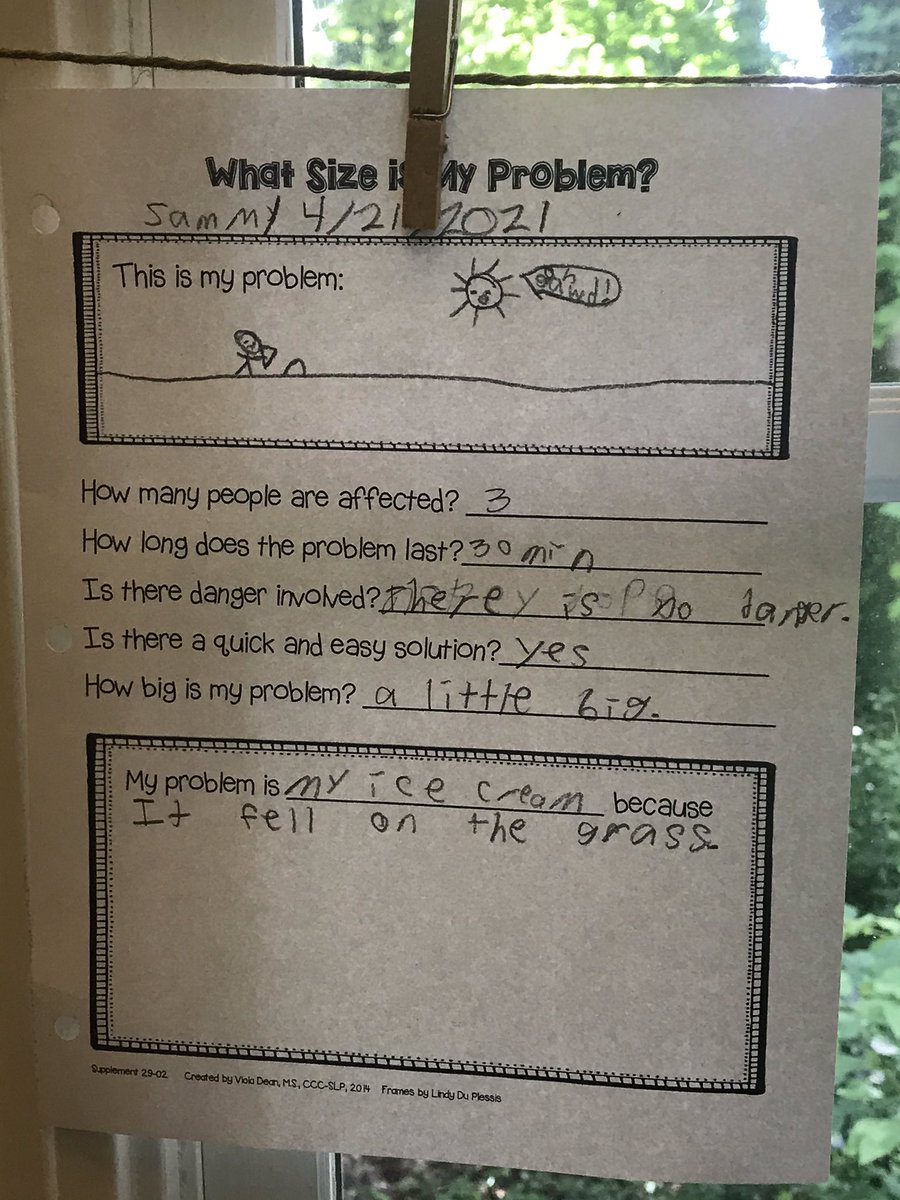 What Size is My Problem?
Sammy 4/21/2021
This is my problem:
How many people are affected? 3
How long does the problem last? 30 min
Is there danger involved? is no danger.
Is there a quick and easy solution? yes
How big is my problem? a little big.
My problem is my ice cream because
It fell on the grass.
Supplement 29-02 Created by Viola Dean, M.S., CCC-SLP, 2014 Frames by Lindy Du Plessis